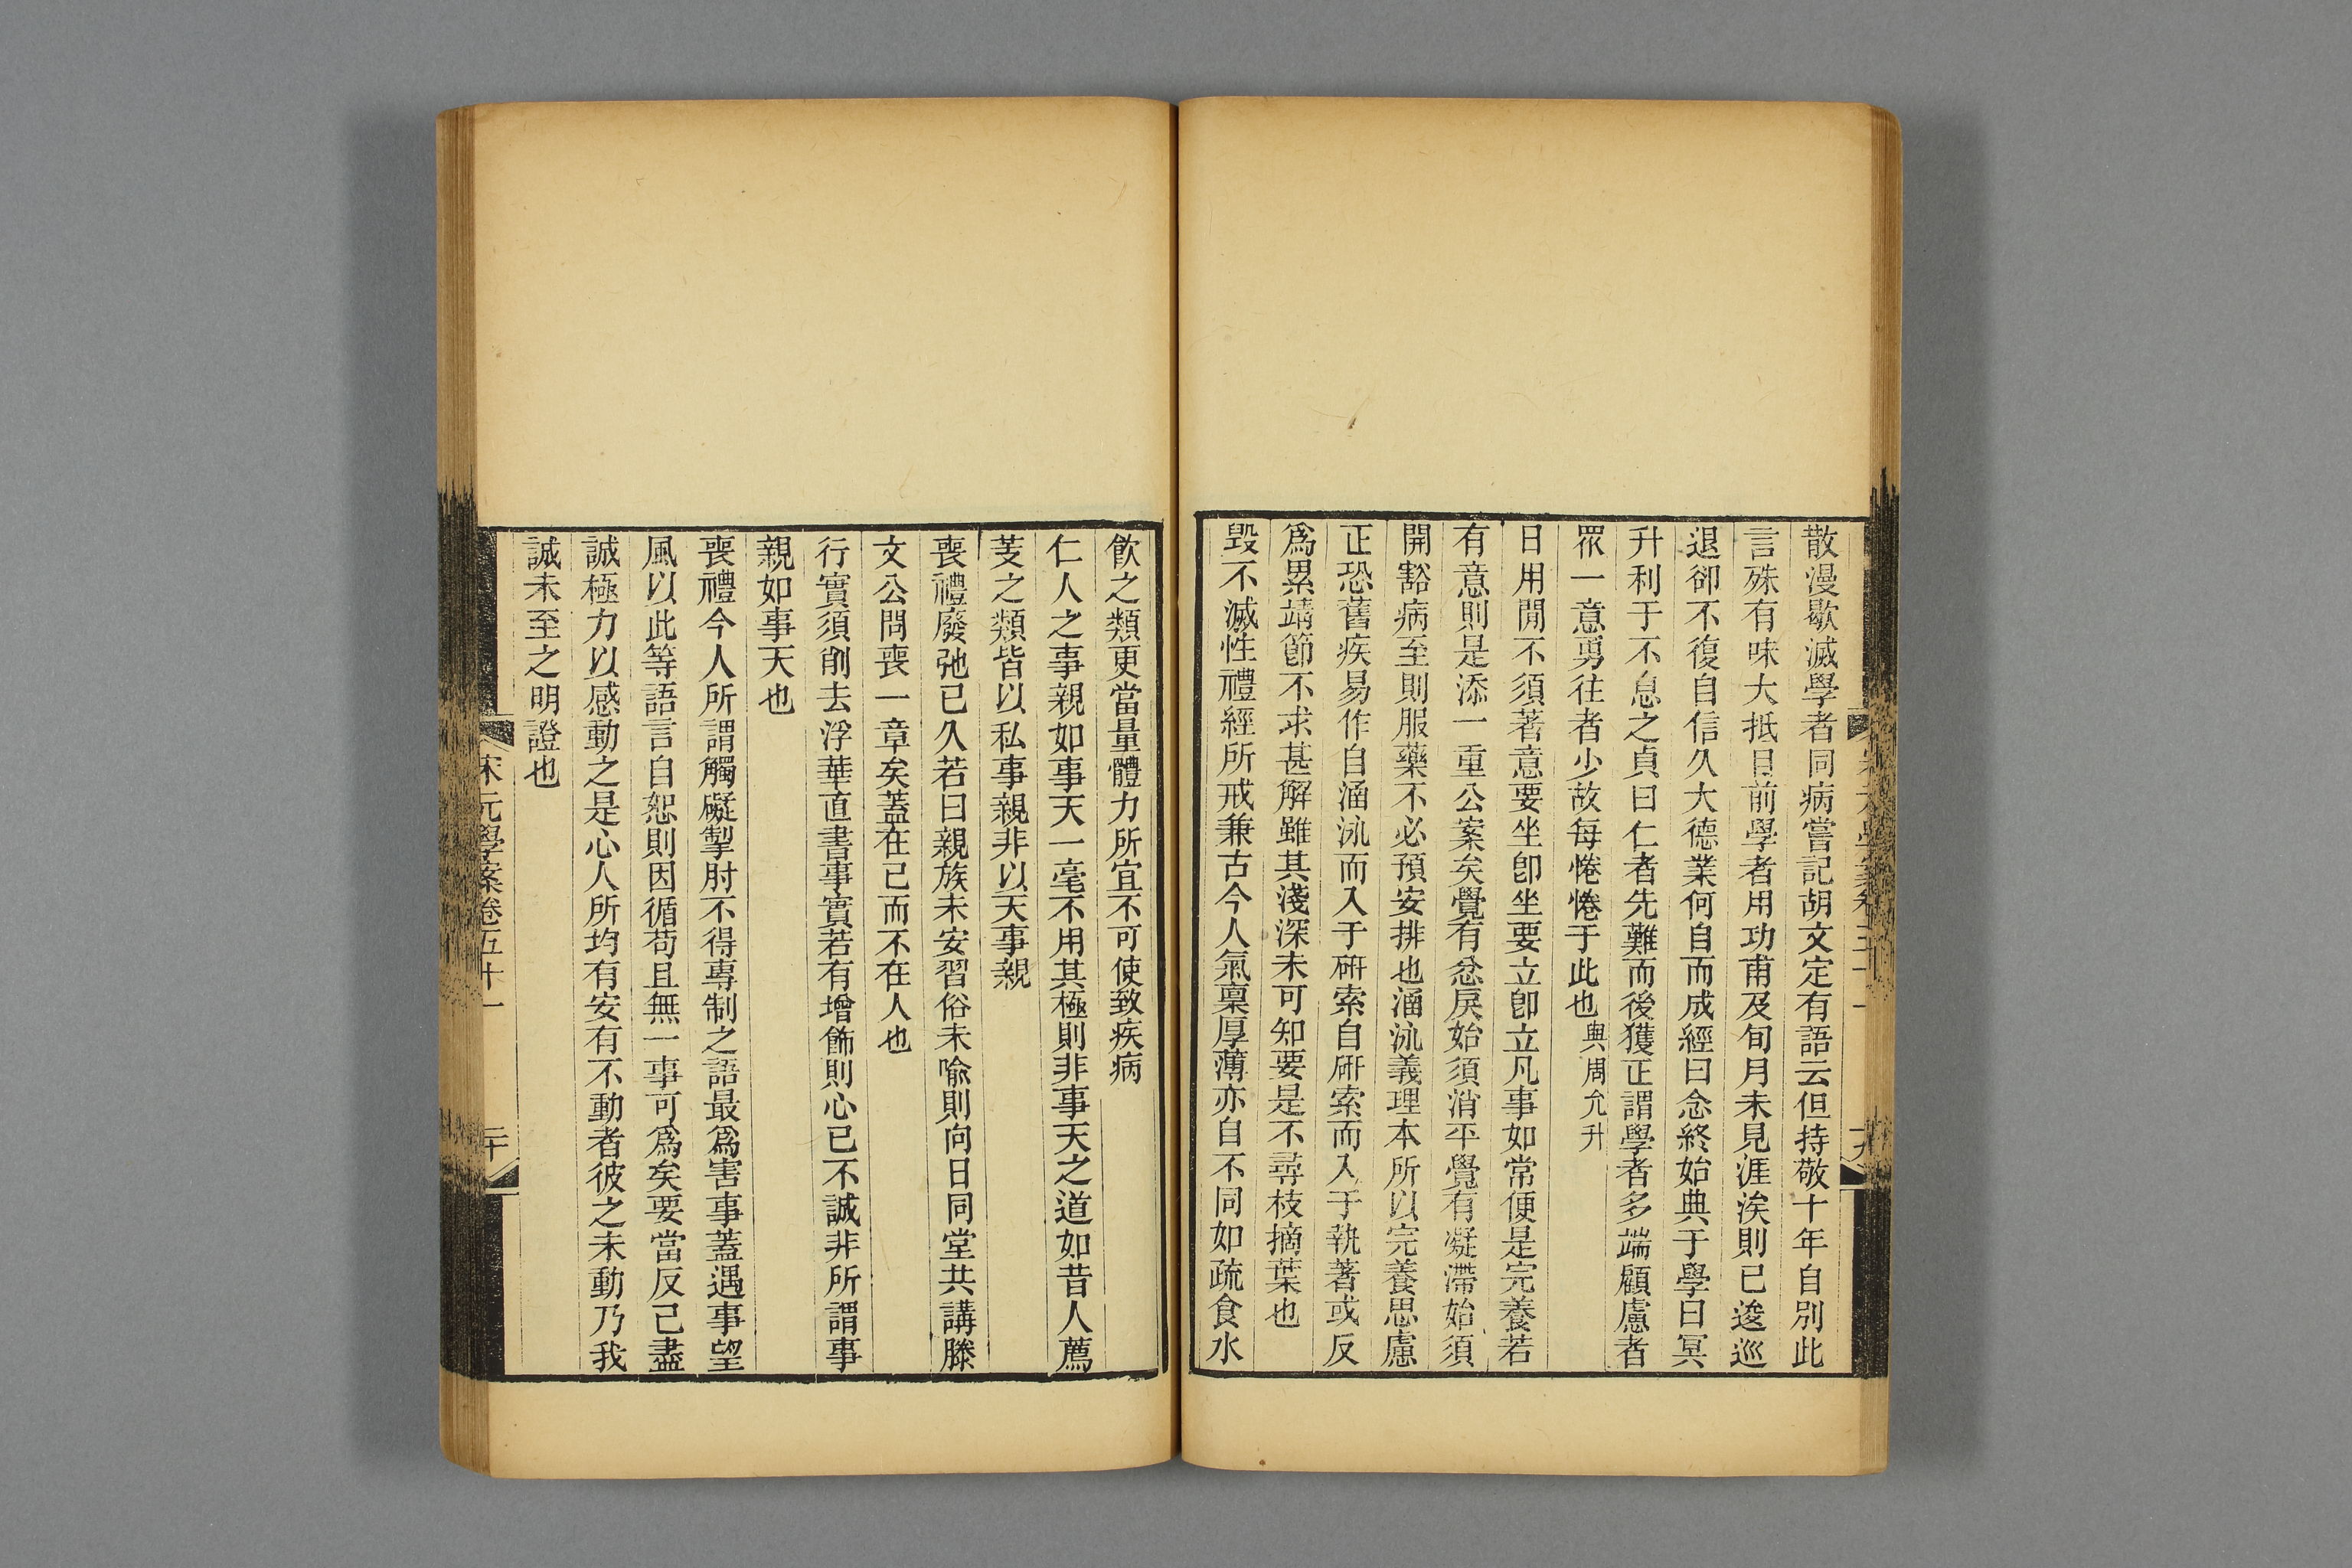 散漫歇滅學者同病嘗記胡文定有語云但持敬十年自別此
言殊有味大抵目前學者用功甫及旬月未見涯涘則已逡巡
退卻不復自信久大德業何自而成經曰念終始典于學曰冥
升利于不息之貞曰仁者先難而後獲正謂學者多端顧慮者
眾一意勇往者少故每惓惓于此也與周允升
日用閒不須著意要坐卽坐要立卽立凡事如常便是完養若
有意則是添一重公案矣覺有忿戾始須消平覺有凝滯始須
開豁病至則服藥不必預安排也涵泳義理本所以完養思慮
正恐舊疾易作自涵泳而入于硏索自硏索而入于執著或反
爲累靖節不求甚解雖其淺深未可知要是不尋枝摘葉也
毀不滅性禮經所戒兼古今人氣稟厚薄亦自不同如疏食水
飮之類更當量體力所宜不可使致疾病
仁人之事親如事天一毫不用其極則非事天之道如昔人薦
芰之類皆以私事親非以天事親
喪禮廢弛已久若曰親族未安習俗未喩則向日同堂共講滕
文公問喪一章矣蓋在己而不在人也
行實須削去浮華直書事實若有增飾則心已不誠非所謂事
親如事天也
喪禮今人所謂觸礙掣肘不得專制之語最爲害事蓋遇事望
風以此等語言自恕則因循苟且無一事可爲矣要當反己盡
誠極力以感動之是心人所均有安有不動者彼之未動乃我
誠未至之明證也
宋元學案卷五十一
二十